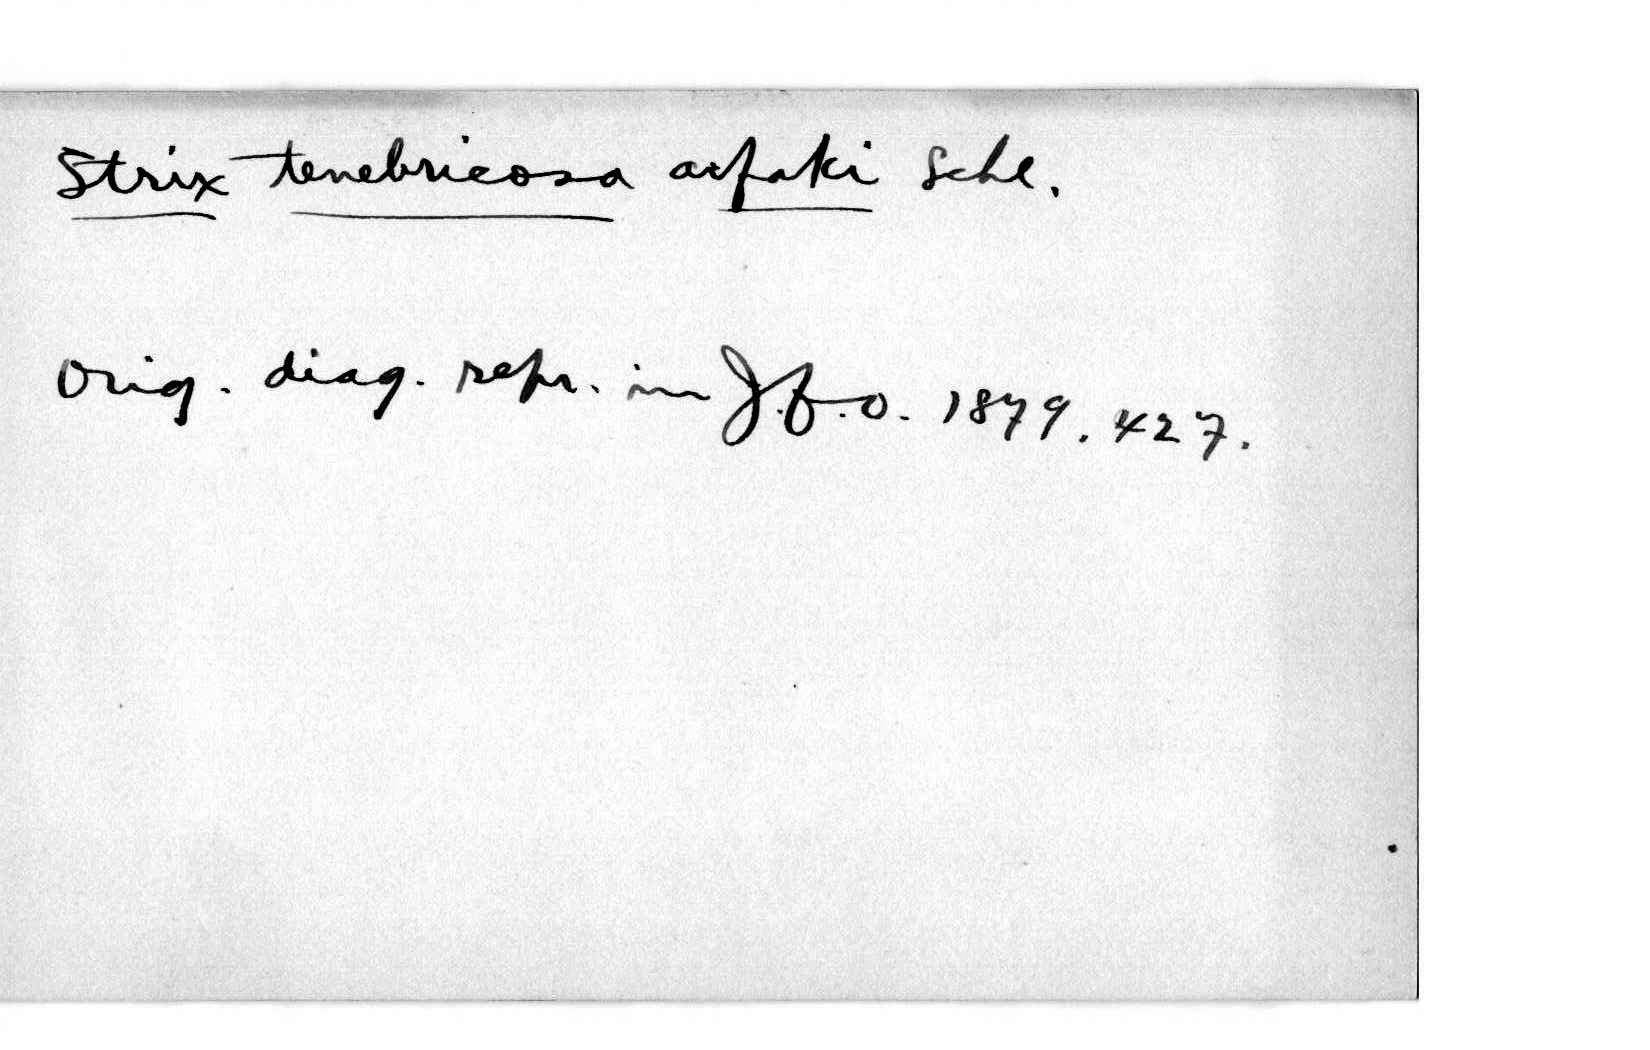 Strix tenebricosa arfaki Schl.
Orig. diag. repr. in J.f.O. 1879. 427.